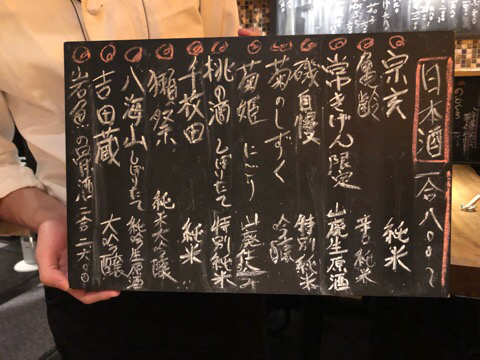 日本酒 一合八〇〇〜
宗玄 純米
亀齢 辛口純米
常きげん 限定 山廃生原酒
磯自慢 特別純米
菊のしずく 吟醸
菊姫 にごり 山廃仕込み
桃の滴 しぼりたて 特別純米
千枚田 純米
獺祭 純米大吟醸
八海山 しぼりたて 純吟生原酒
吉田蔵 大吟醸
岩魚の骨酒 二合 二六〇〇